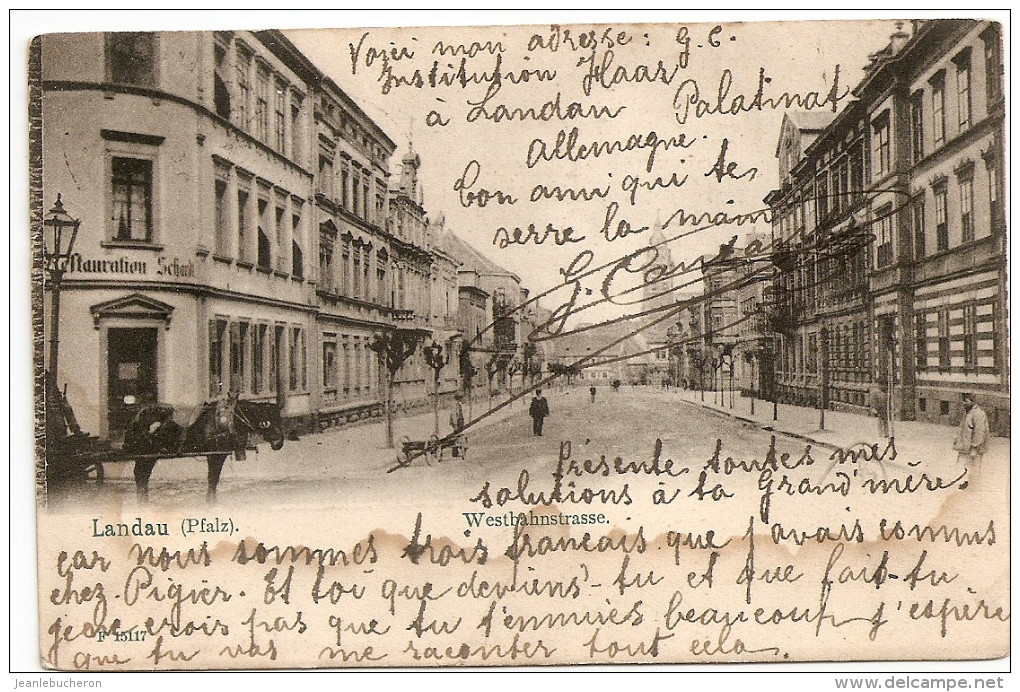 Voici mon adresse : G. C.
Institution Haas
à Landau Palatinat
Allemagne.
bon ami qui te
serre la main
G. Cantau
Restauration Schack
Présente toutes mes
solutions à ta Grand'mère
Landau (Pfalz). Westbahnstrasse.
car nous sommes trois français que j'avais connus
chez Pigier. Et toi que deviens-tu et que fait-tu
je ne crois pas que tu t'ennuies beaucoup j'espère
F 15117
que tu vas me raconter tout cela.
jeanlebucheron
www.delcampe.net